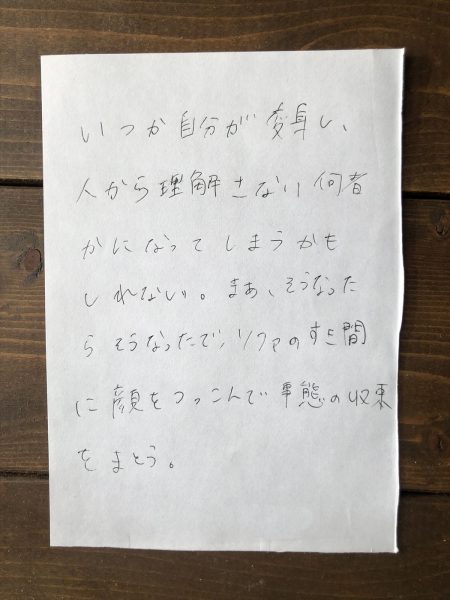 いつか自分が変身し、
人から理解さない何者
かになってしまうかも
しれない。まあ、そうなった
らそうなったで、ソファのすき間
に顔をつっこんで事態の収束
をまとう。